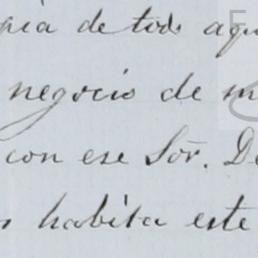 pia de todo aqu
negocio de m
con ese Sōr. De
habita este